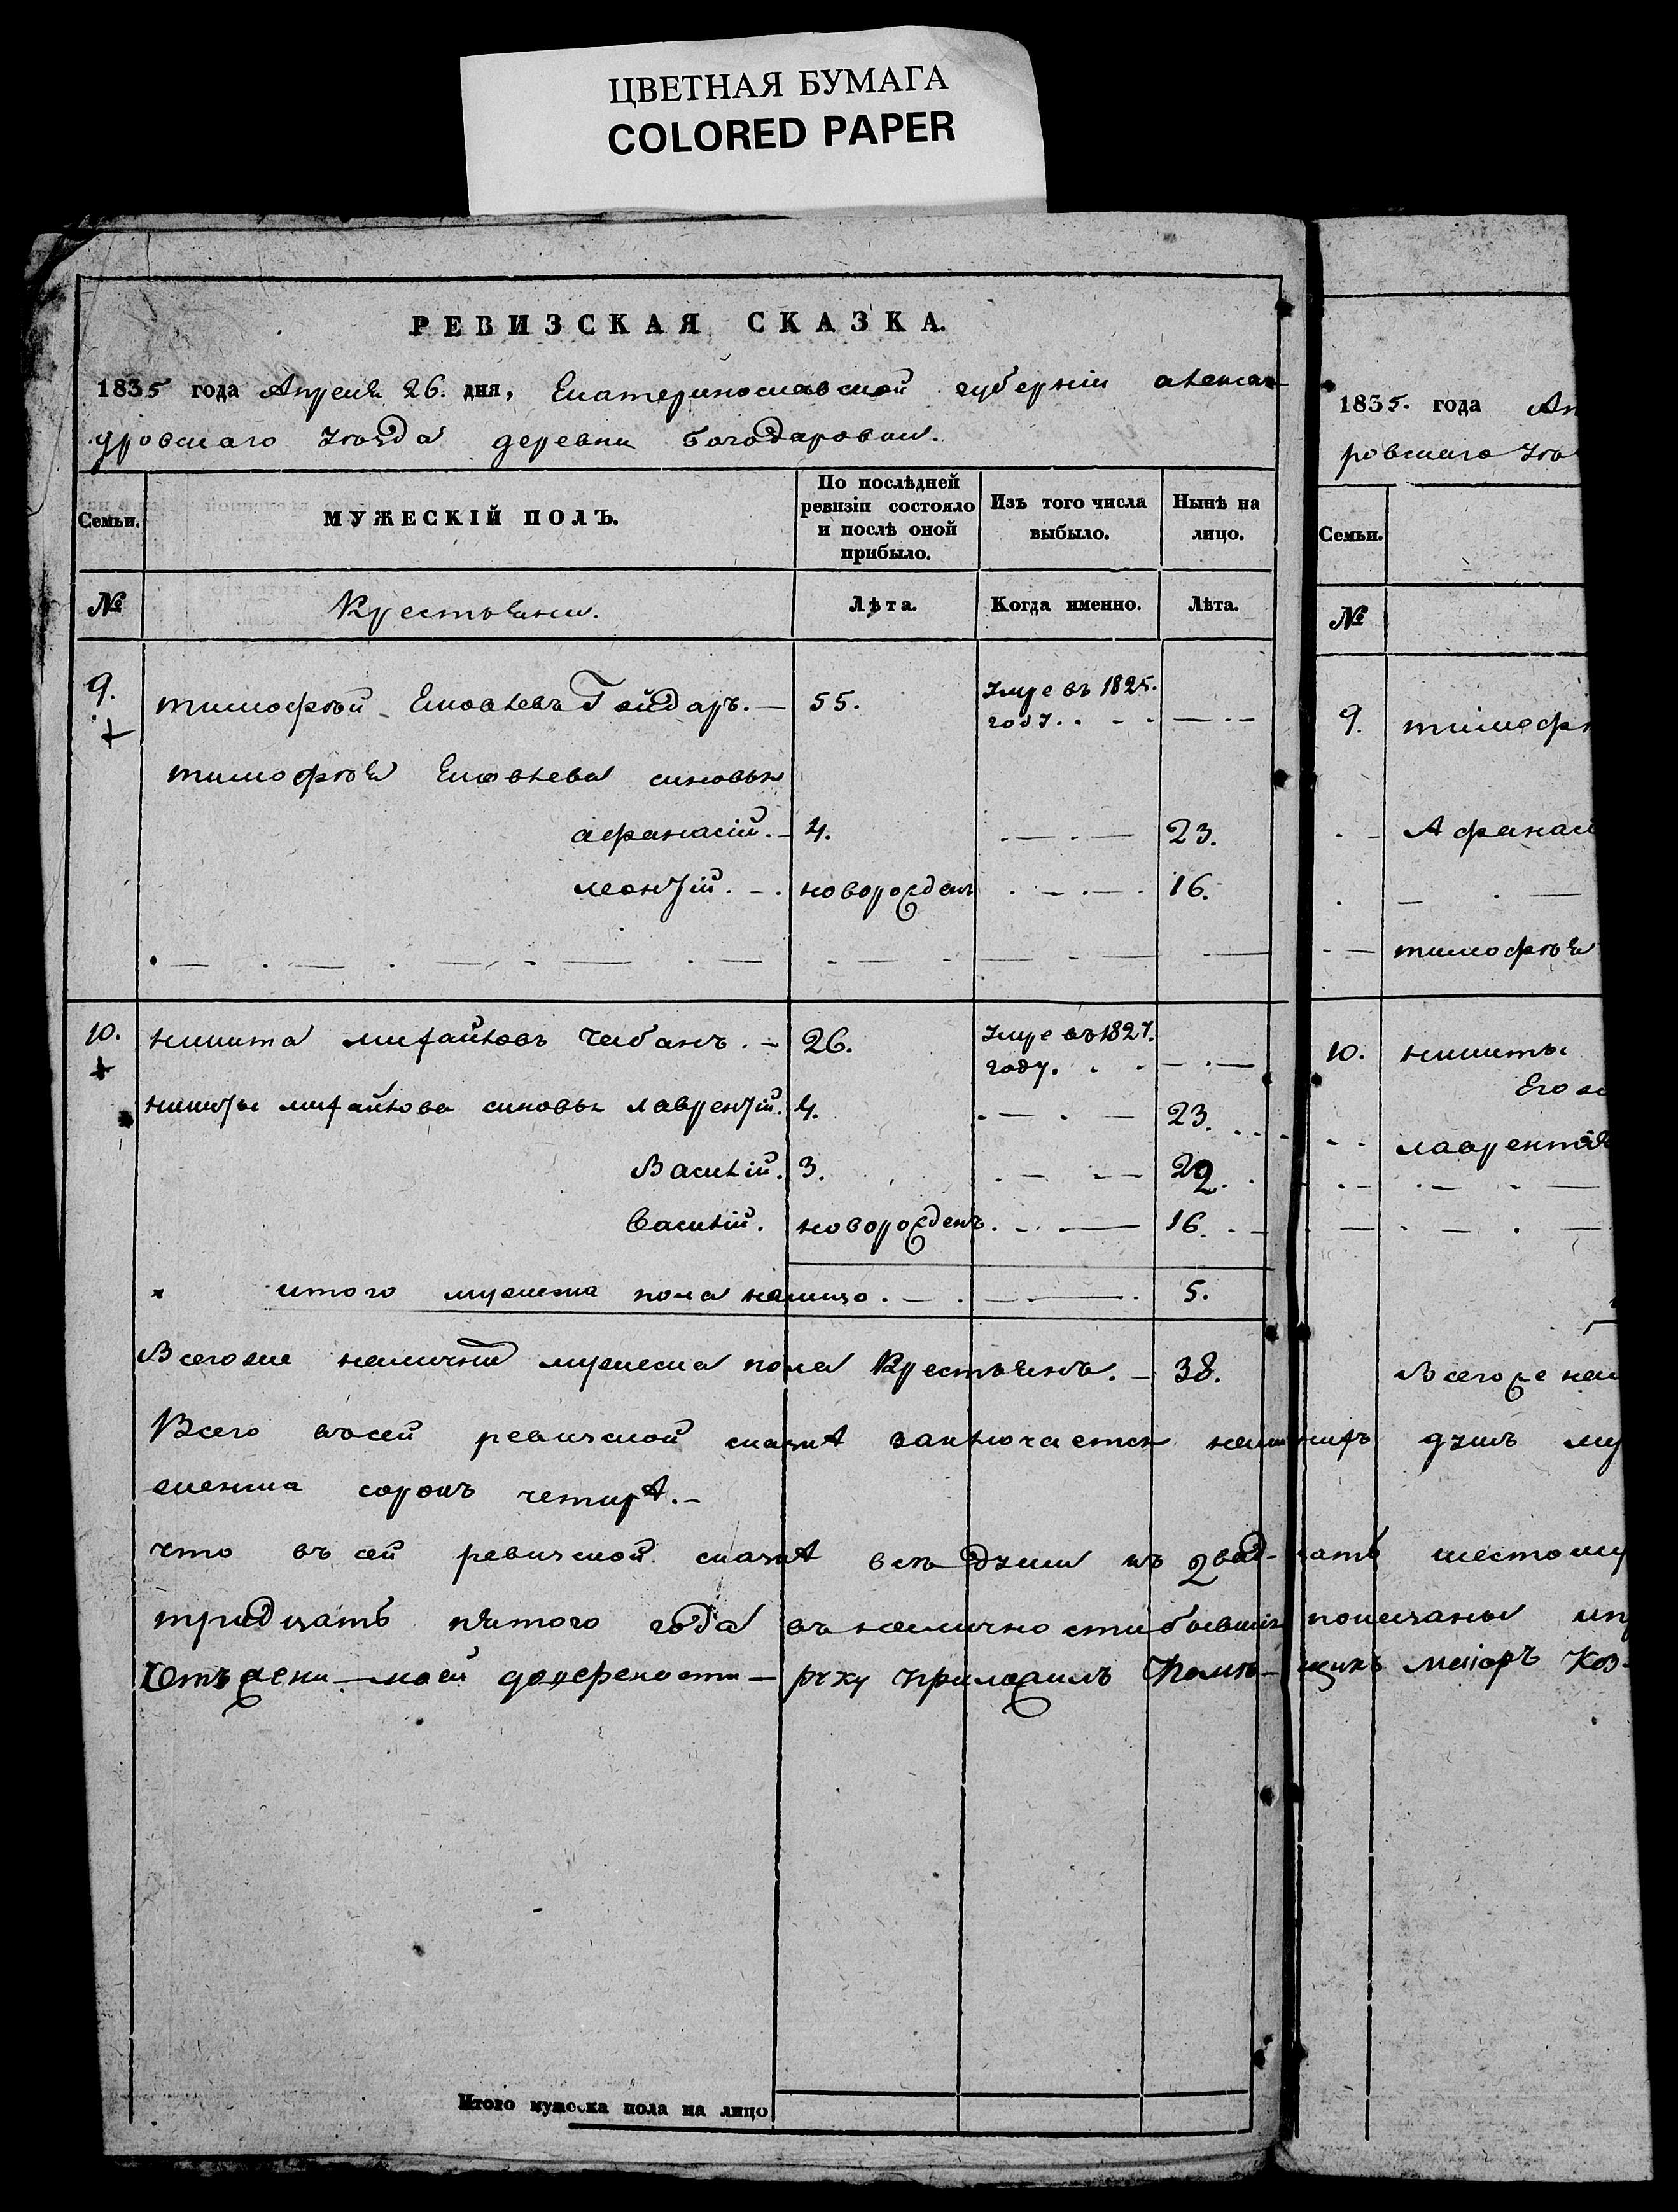 ЦВЕТНАЯ БУМАГА
COLORED PAPER
РЕВИЗСКАЯ СКАЗКА.
1835 года Апреля 26. дня, Екатеринославской губерніи алексан
дровскаго уѣзда деревни Богодаровки.
Семьи.
МУЖЕСКІЙ ПОЛЪ.
По послѣдней ревизіи состояло и послѣ оной прибыло.
Изъ того числа выбыло.
Нынѣ на лицо.
№ Крестьяни. Лѣта. Когда именно. Лѣта.
9. тимофѣй Яковлевъ Гайдаръ. — 55. Умре въ 1825. году.
тимофѣя Яковлева синовья
афанасій. — 4. 23.
леонтій. новорожденъ 16.
10. никита михайловъ Чабанъ. — 26. Умре въ 1827. году.
никиты михайлова синовья лаврентій. 4. 23.
Василій. 3. 22.
Василій. новорожденъ. 16.
итого мужеска пола налицо. 5.
Всегоже наличнихъ мужеска пола Крестьянъ. — 38.
Всего въсей ревизской сказкѣ заключается наличнихъ душъ му
женска сорокъ четирѣ. —
что въ сей ревизской сказкѣ всѣ души къ двад-цать шестому
тридцать пятого года въ наличности бывшія показаны
моей доверености — руку приложилъ Помѣ-щикъ маіоръ Коз-
Итого мужеска пола на лицо
1835. года Ап
ровскаго Уѣ
Семьи.
№
9. тимофѣ
Афанасі
тимофѣя
10. никиты
Его
лаврентія
Всегоже нал